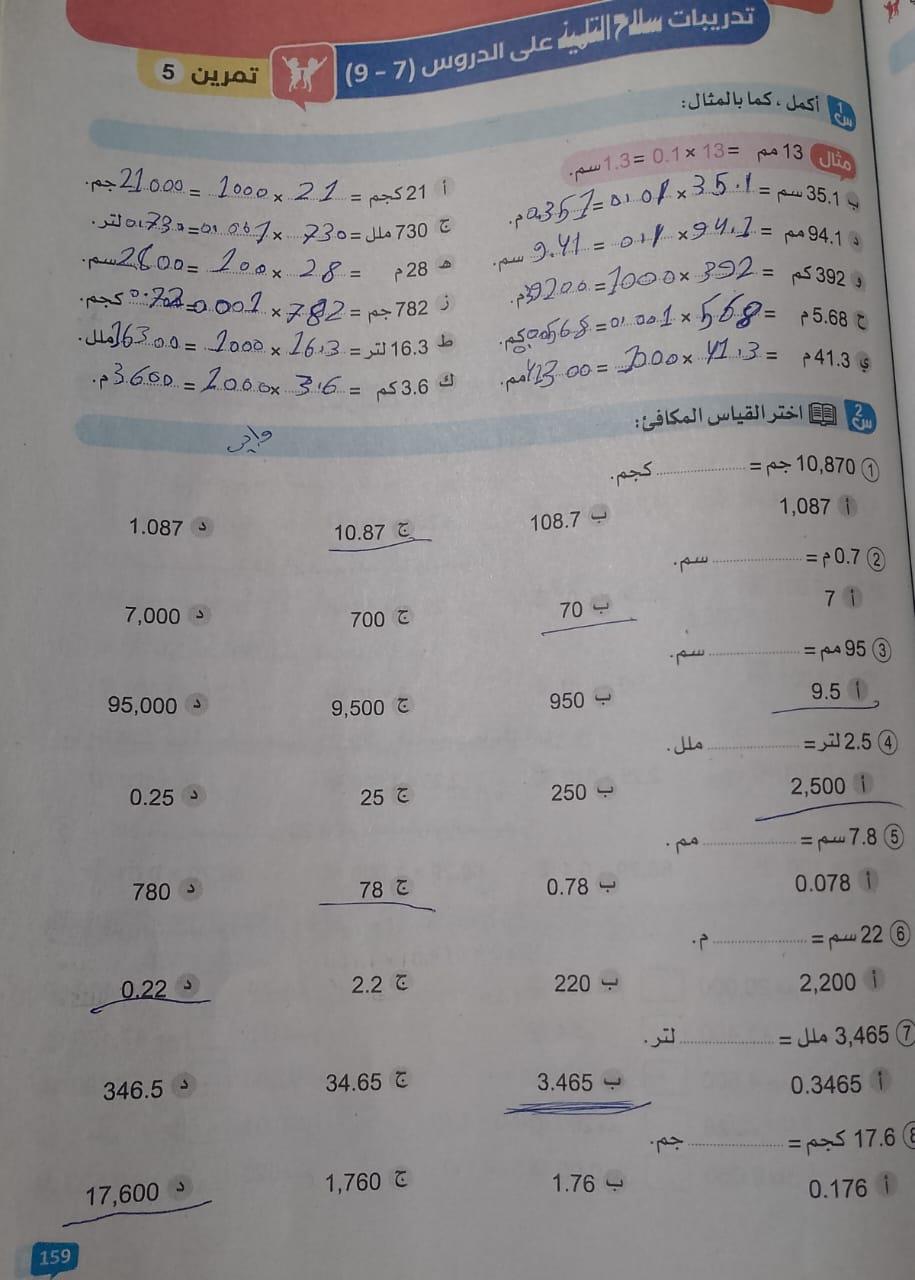 تدريبات سلاح التلميذ على الدروس (7 - 9)
تمرين 5
س1 أكمل ، كما بالمثال:
مثال 13 مم = 13 × 0.1 = 1.3 سم.
أ 21 كجم = 21 × 1000 = 21000 جم.
ب 35.1 سم = 35.1 × 0.01 = 0.351 م.
ج 730 ملل = 730 × 0.001 = 0.730 لتر.
د 94.1 مم = 94.1 × 0.1 = 9.41 سم.
ه 28 م = 28 × 100 = 2800 سم.
و 392 كم = 392 × 1000 = 39200 م.
ز 782 جم = 782 × 0.001 = كجم.
ح 5.68 م = 568 × 0.001 = كم.
ط 16.3 لتر = 16.3 × 1000 = 16300 ملل.
ي 41.3 م = 41.3 × 1000 = 41300 مم.
ك 3.6 كم = 3.6 × 1000 = 3600 م.
س2 اختر القياس المكافئ:
① 10,870 جم = ............ كجم.
أ 1,087 ب 108.7 ج 10.87 د 1.087
② 0.7 م = ............ سم.
أ 7 ب 70 ج 700 د 7,000
③ 95 مم = ............ سم.
أ 9.5 ب 950 ج 9,500 د 95,000
④ 2.5 لتر = ............ ملل.
أ 2,500 ب 250 ج 25 د 0.25
⑤ 7.8 سم = ............ مم.
أ 0.078 ب 0.78 ج 78 د 780
⑥ 22 سم = ............ م.
أ 2,200 ب 220 ج 2.2 د 0.22
⑦ 3,465 ملل = ............ لتر.
أ 0.3465 ب 3.465 ج 34.65 د 346.5
⑧ 17.6 كجم = ............ جم.
أ 0.176 ب 1.76 ج 1,760 د 17,600
159